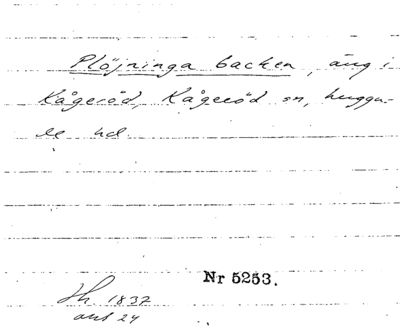 Plöjninga backen, äng i
Kågeröd, Kågeröd sn, Luggu-
de hd.
Nr 5253.
Sk. 1837
akt 24